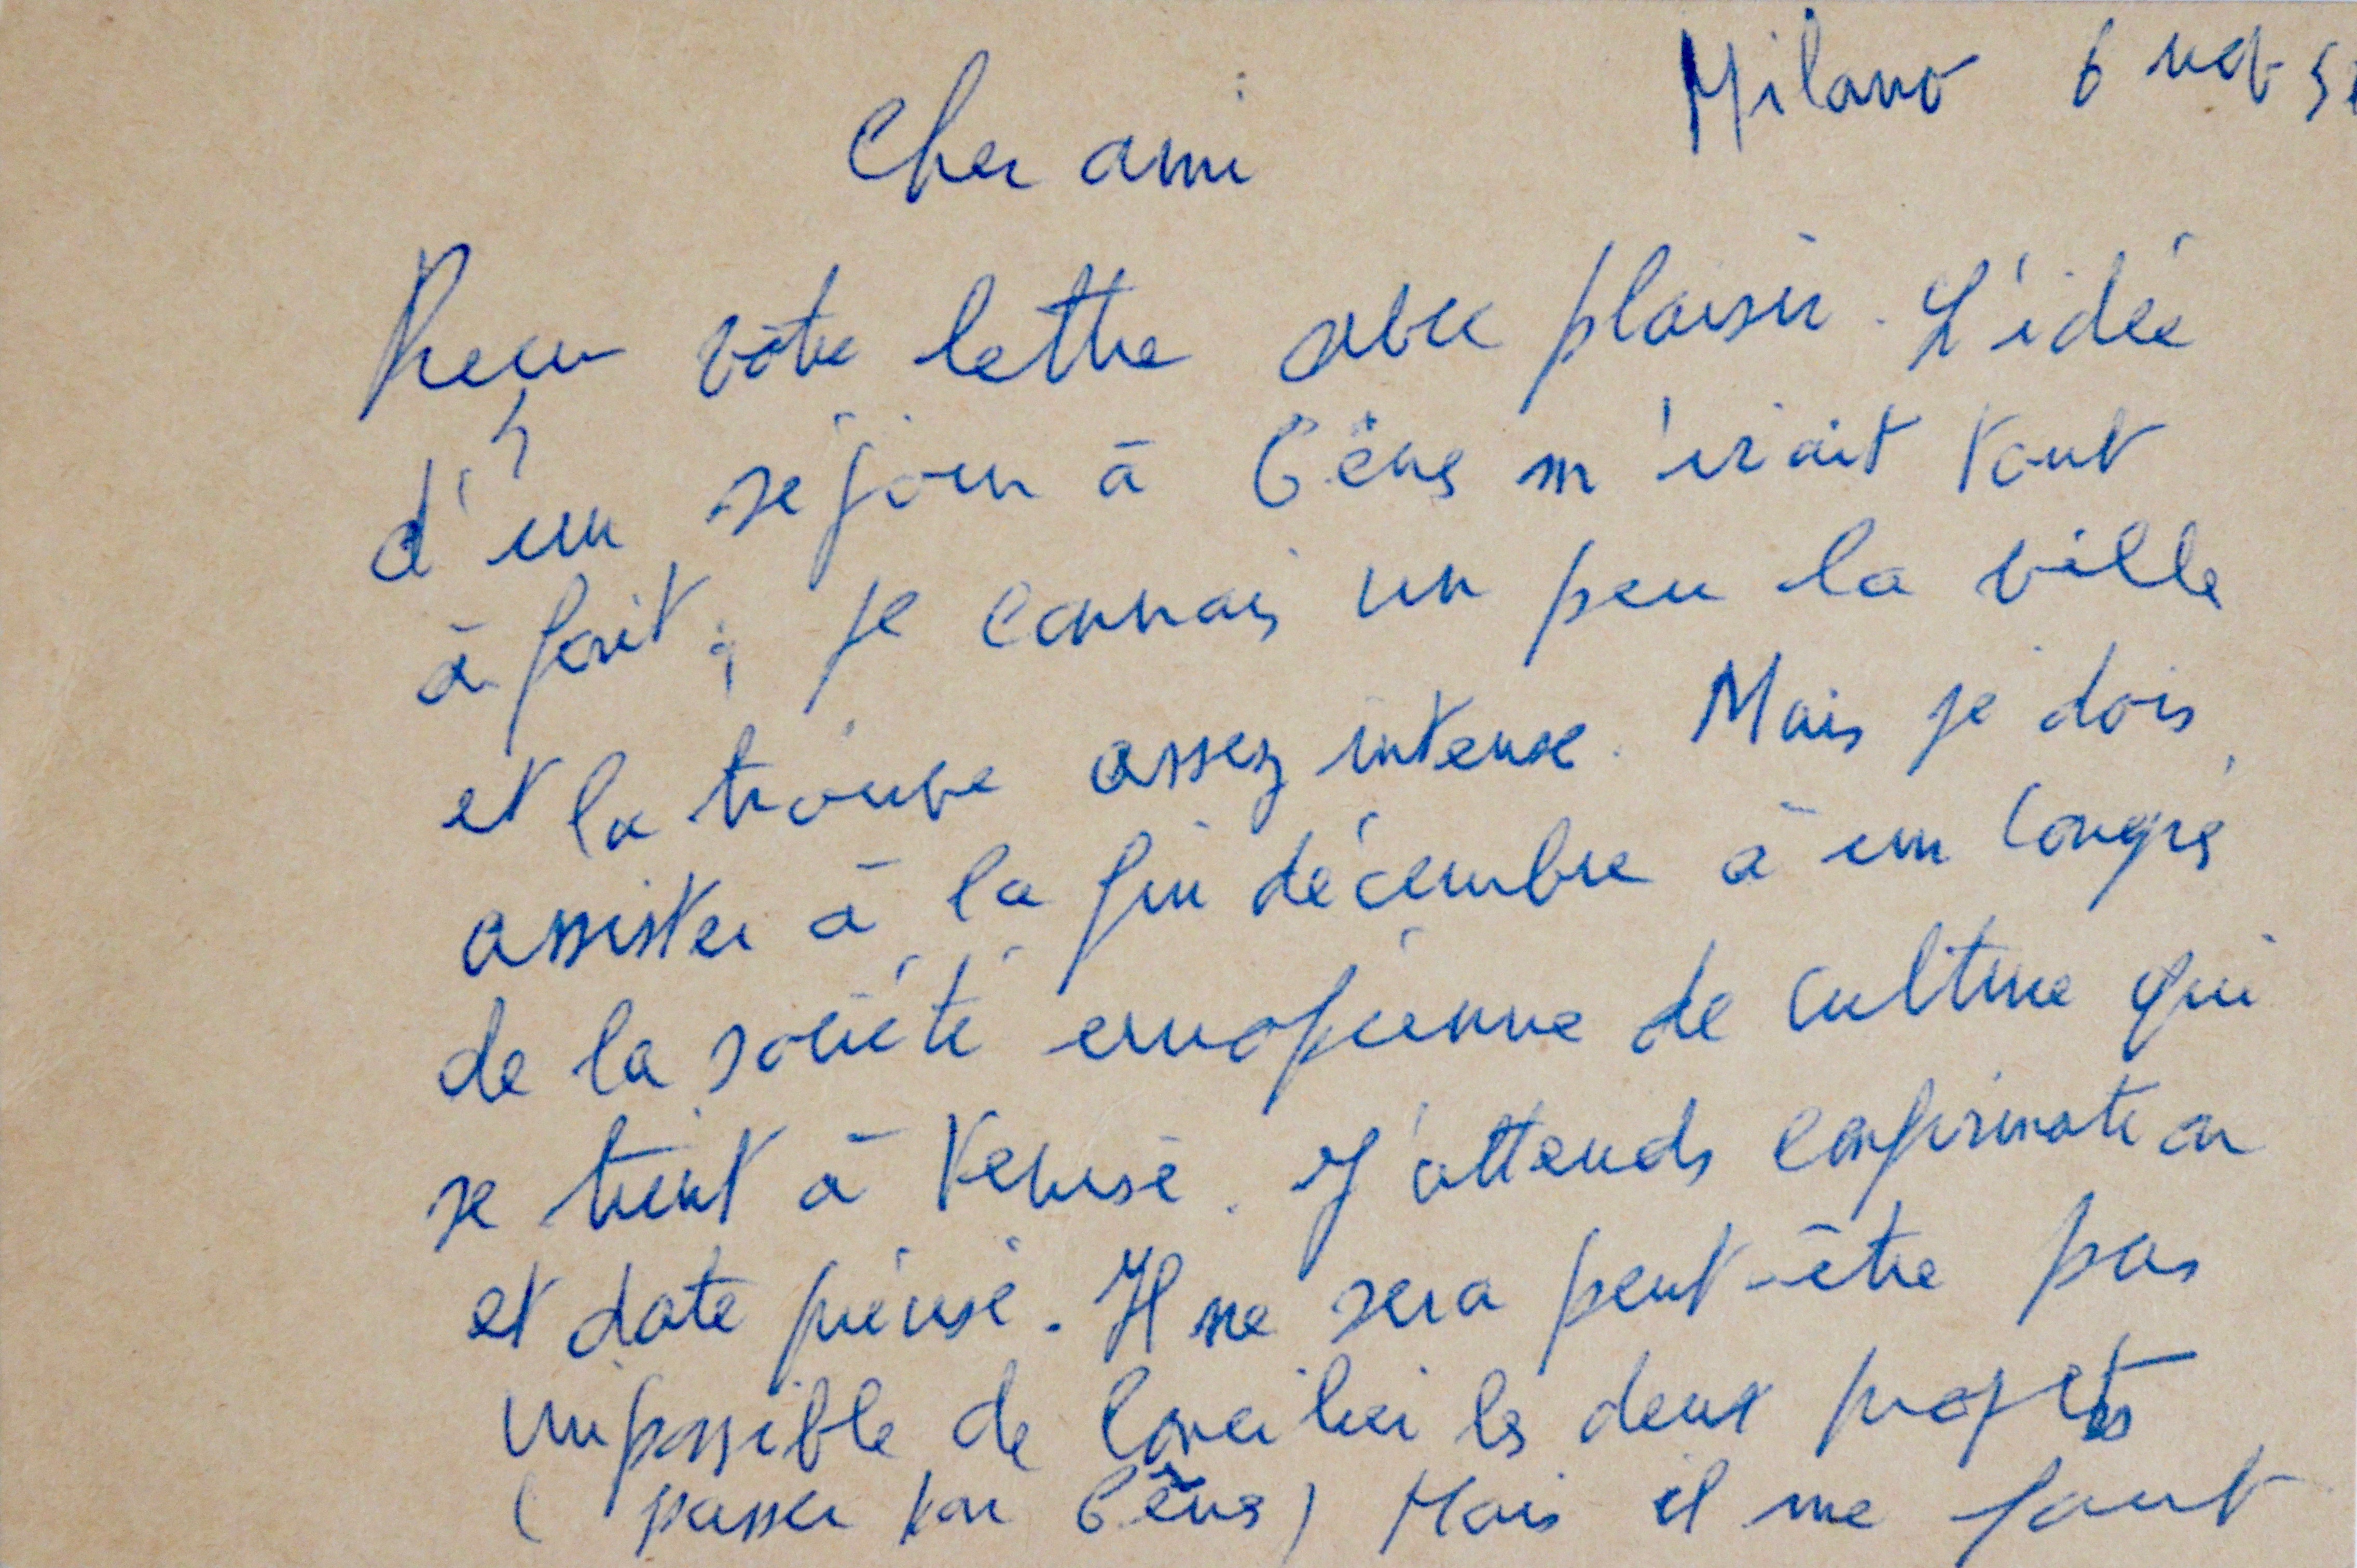 Milano 6 nov 5
Cher ami
Reçu vôtre lettre avec plaisir. L'idée
d'un séjour à Gênes m'irait tout
à fait ; je connais un peu la ville
et la trouve assez intense. Mais je dois
assister à la fin décembre à un Congrès
de la société européenne de culture qui
se tient à Venise. J'attends confirmation
et date précise. Il ne sera peut-être pas
impossible de concilier les deux projets
( passer par Gênes ) Mais il me faut